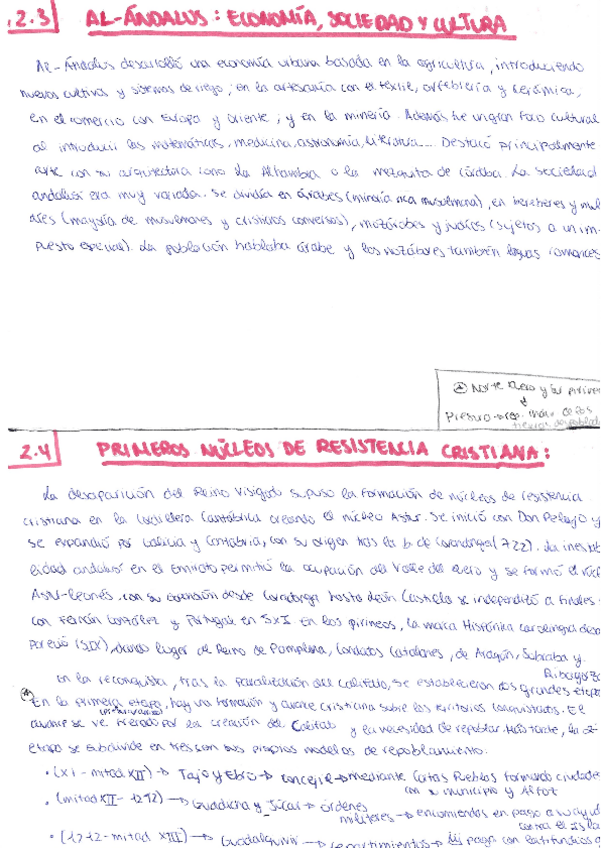 2.3 AL-ÁNDALUS: ECONOMÍA, SOCIEDAD Y CULTURA
Al-Ándalus desarrolló una economía urbana basada en la agricultura, introduciendo
nuevos cultivos y sistemas de riego; en la artesanía con el textil, orfebrería y cerámica,
en el comercio con Europa y Oriente, y en la minería. Además fue un gran foco cultural
al introducir las matemáticas, medicina, astronomía, literatura.... Destacó principalmente
arte con su arquitectura como la Alhambra o la mezquita de Córdoba. La sociedad
andalusí era muy variada. Se dividía en árabes (minoría rica musulmana), en bereberes y mul
adíes (mayoría de musulmanes y cristianos conversos), mozárabes y judíos (sujetos a un im-
puesto especial). La población hablaba árabe y los mozárabes también lenguas romances
Norte Duero y
Presura
2.4 PRIMEROS NÚCLEOS DE RESISTENCIA CRISTIANA:
La desaparición del Reino Visigodo supuso la formación de núcleos de resistencia
cristiana en la Cordillera Cantábrica creando el núcleo Astur. Se inició con Don Pelayo y
se expandió por Galicia y Cantabria, con su origen tras la b. de Covadonga (722). La inestab
ilidad andalusí en el Emirato permitió la ocupación del Valle del Duero y se formó el
Astur-Leonés. con su extensión desde Covadonga hasta León. Castilla se independizó a finales
con Fernán González y Portugal en S.XI. En los pirineos, la marca Hispánica carolingia
(S.IX), dando lugar al Reino de Pamplona, Condados Catalanes, de Aragón, Sobrarbe y
Ribagorza
En la reconquista, tras la paralización del Califato, se establecieron dos grandes etapas
En la primera etapa, hay una formación y avance cristiana sobre los territorios conquistados. El
avance se ve frenado por la creación del Califato y la necesidad de repoblar. La 2ª
etapa se subdivide en tres con sus propios modelos de repoblamiento:
• (XI - mitad XII) → Tajo y Ebro → concejil → mediante Cartas Pueblas formando ciudades
con su municipio y Alfoz
• (mitad XII - 1212) → Guadiana y Júcar → órdenes
militares → encomiendas en pago a su ayuda
contra el
• (1212 - mitad XIII) → Guadalquivir → repartimientos → paga con latifundios